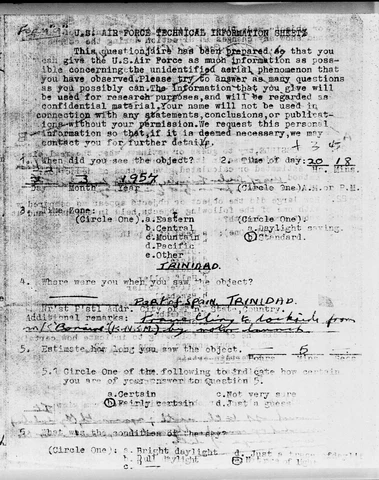 U.S. AIR FORCE TECHNICAL INFORMATION SHEET
This questionaire has been prepared so that you
can give the U.S.Air Force as much information as pos-
sible concerning the unidentified aerial phenomenon that
you have observed.Please try to answer as many questions
as you possibly can.The information that you give will
be used for research purposes,and will be regarded as
confidential material,Your name will not be used in
connection with any statements,conclusions,or publicat-
ions without your permission.We request this personal
information so that,if it is deemed necessary,we may
contact you for further details.
1. When did you see the object? 2. Time of day: 20 18
3 1957
Day Month Year (Circle One) A.M. or P.M.
3. Time Zone:
(Circle One).a.Eastern (Circle One).
b.Central a.Daylight saving
c.Mountain b.Standard.
d.Pacific
e.Other
TRINIDAD.
4. Where were you when you saw the object?
PORT of SPAIN, TRINIDAD.
State,Country.
Additional remarks: Travelling to dockside from
by motor launch
5. Estimate how long you saw the object. 5
5.1 Circle One of the following to indicate how certain
you are of your answer to Question 5.
a.Certain c.Not very sure
b.Fairly certain d.Just a guess
6. What was the condition of the sky?
(Circle One): a. Bright daylight d. Just a
b. Dull daylight